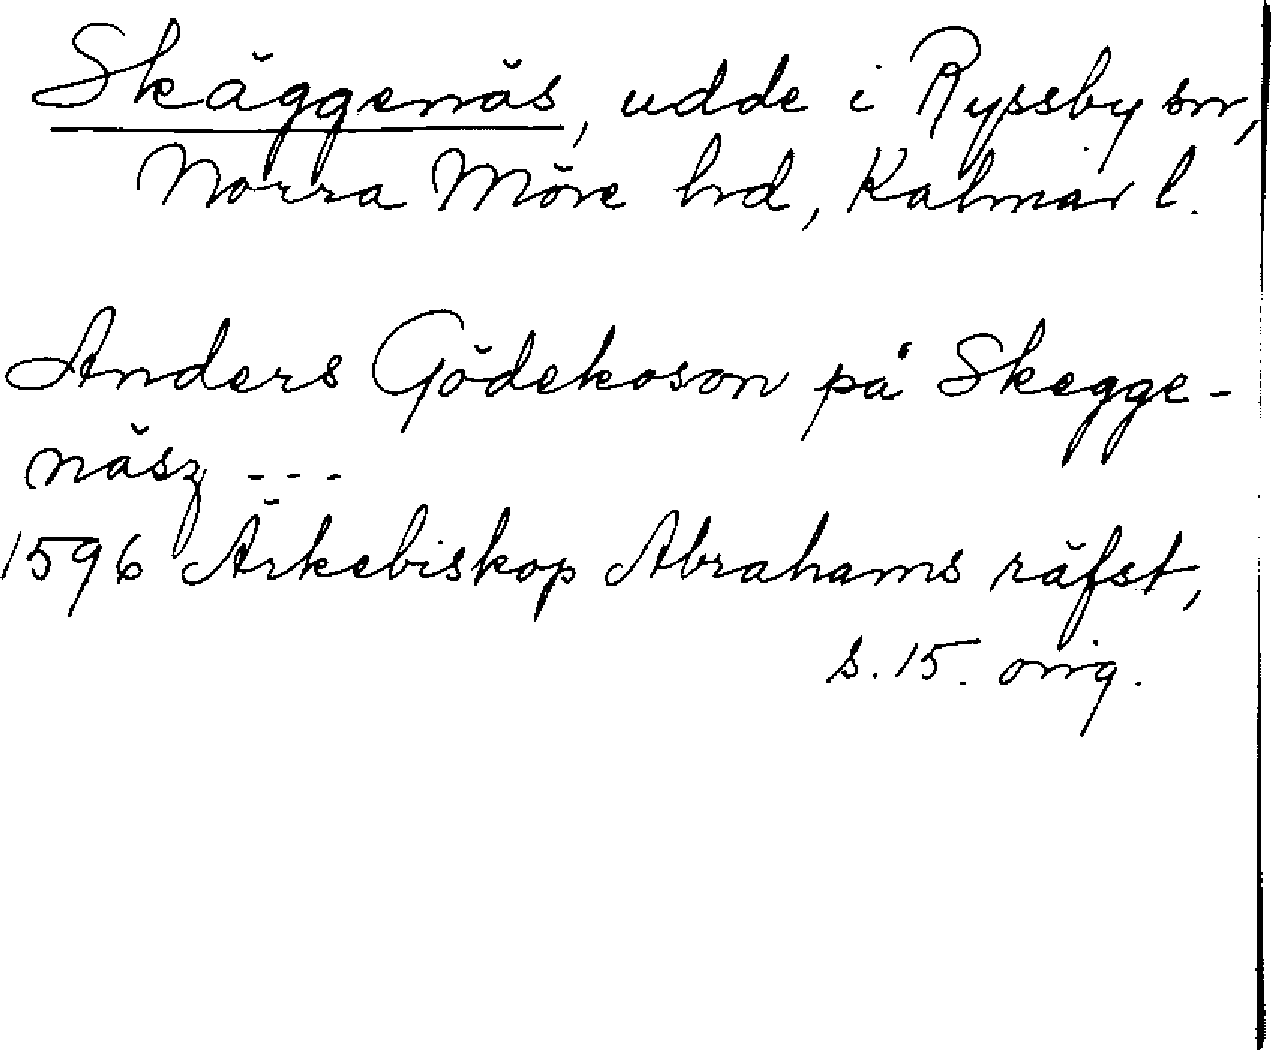 Skäggenäs, udde i Ryssby sn,
Norra Möre hd, Kalmar l.
Anders Gödekoson på Skegge-
näsz - - -
1596 Ärkebiskop Abrahams räfst,
s. 15. orig.